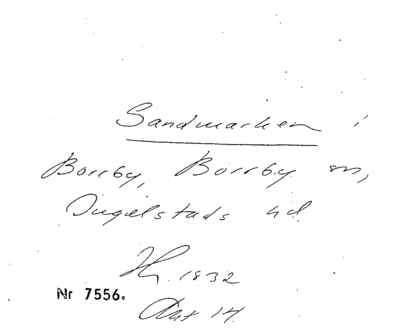 Sandmarken i
Borrby, Borrby sn,
Ingelstads hd
1832
Nr 7556.
Akt 14